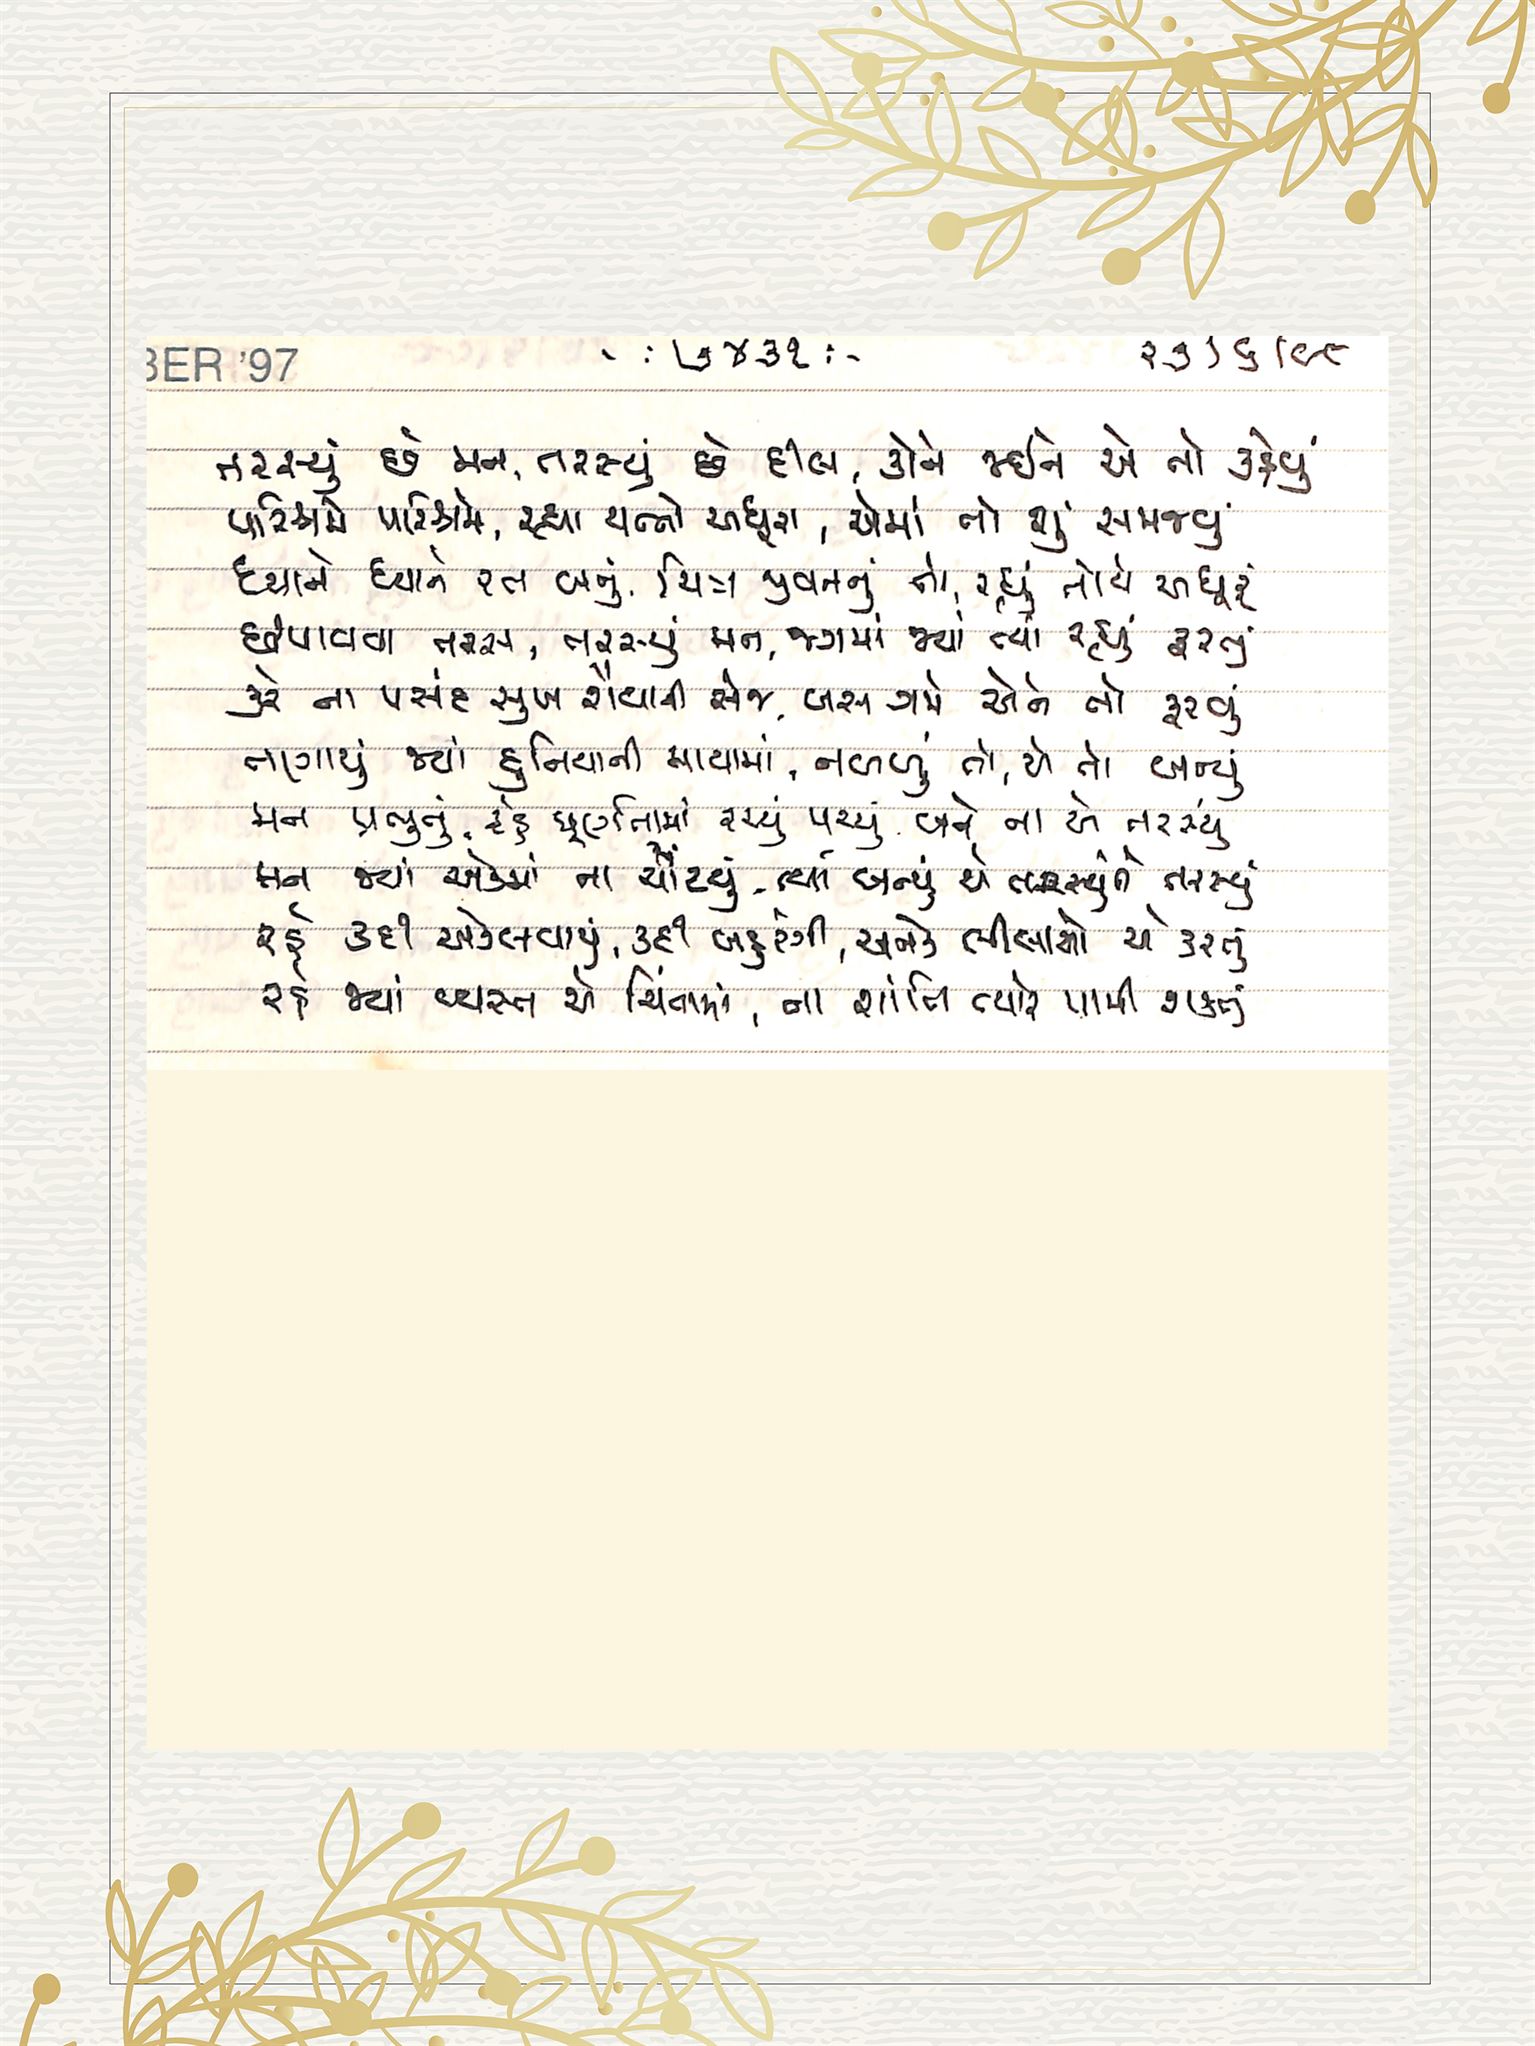 BER '97
-: ૭૪૩૧ :-
૨૭/૬/૯૮
તરસ્યું છે મન, તરસ્યું છે દીલ, કોને જઈને એ તો કહેવું
પરિશ્રમે પરિશ્રમે, રહ્યા યત્નો અધૂરા, એમાં તો શું સમજવું
ધ્યાને ધ્યાને રત બનું, ચિત્ર પ્રવતનું તો, રહ્યું તોયે અધૂરૂં
છીપાવવા તરસ, તરસ્યું મન, જગમાં જ્યાં ત્યાં રહ્યું ફરતું
કરે ના પસંદ સુખ શૈયાની સેજ, બસ ગમે એને તો ફરવું
તણાયું જ્યાં દુનિયાની માયામાં, નબળું તો, એ તો બન્યું
મન પ્રભુનું, પૂર્ણતામાં રચ્યું પચ્યું બને ના એ તરસ્યું
મન જ્યાં એકમાં ના ચોંટયું, ત્યાં બન્યું એ તરસ્યું ને તરસ્યું
રહે કદી એકલવાયું, કદી બહુરંગી, અનેક લીલાઓ એ કરતું
રહે જ્યાં વ્યસ્ત એ ચિંતામાં, ના શાંતિ ત્યારે પામી શકતું